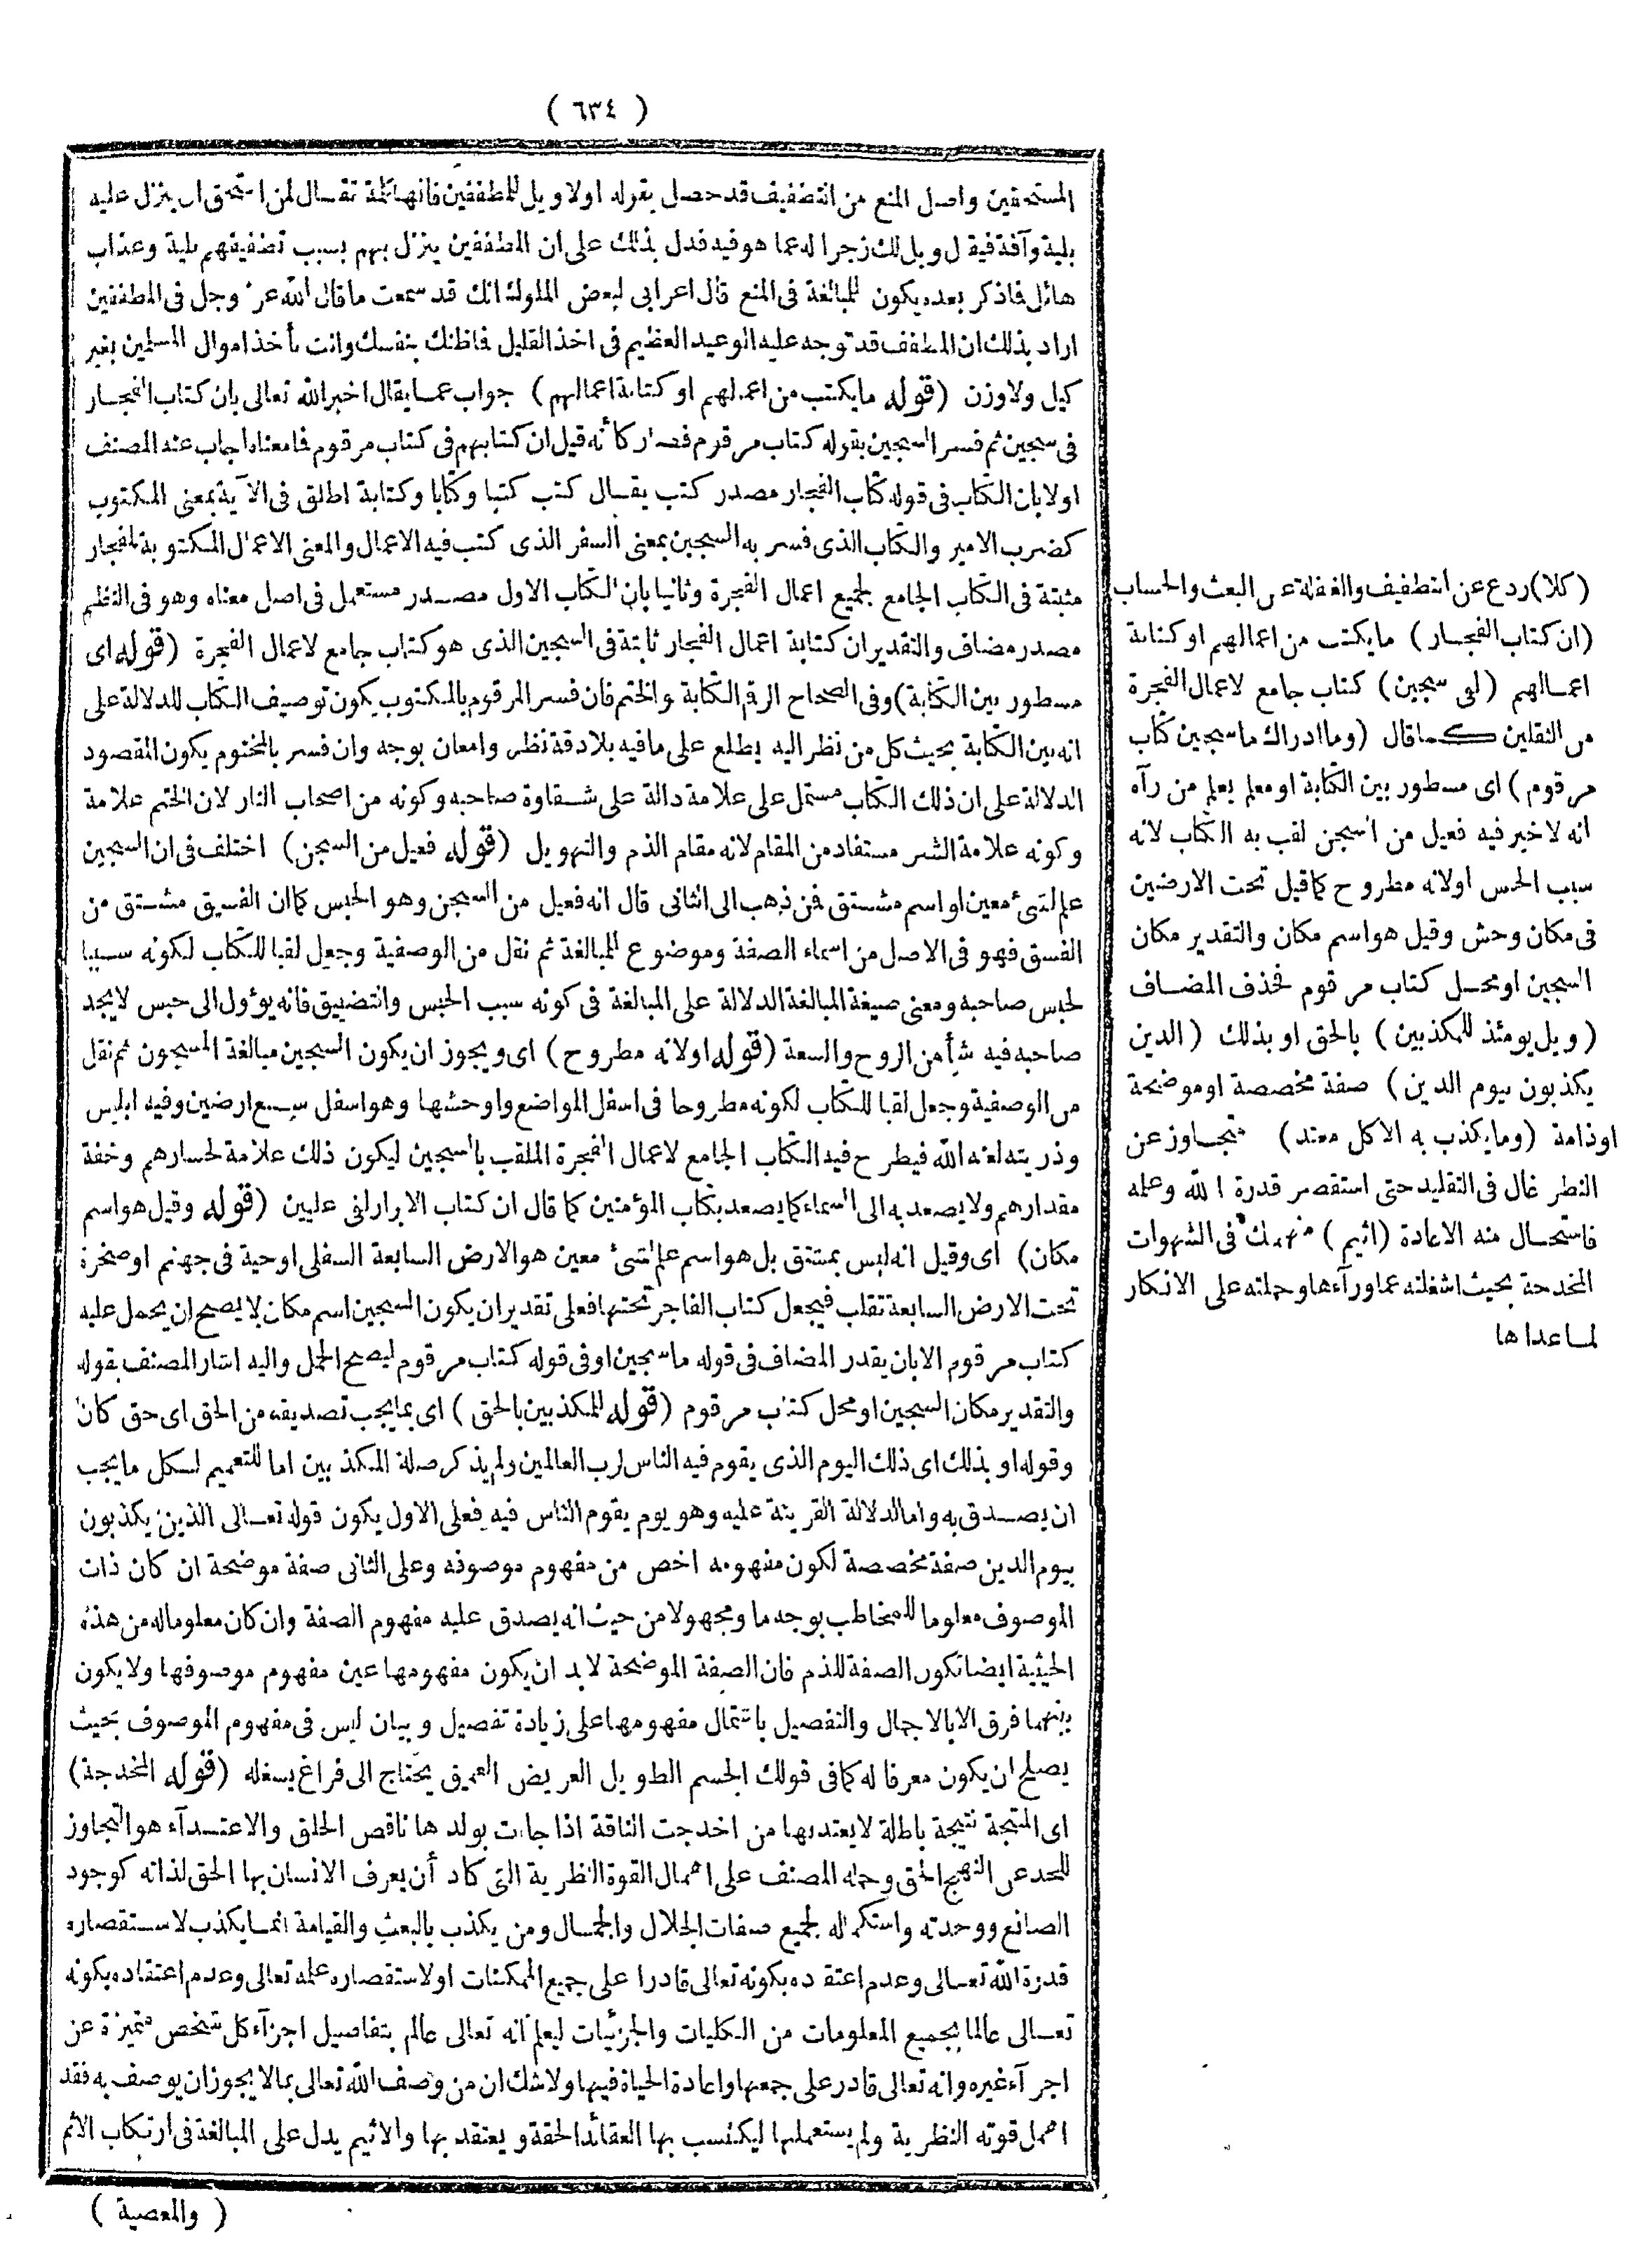 ( ٦٣٤ )
المستحقين واصل المنع من التطفيف قد حصل بقوله اولا ويل للمطففين فانها كلمة تقال لمن استحق ان ينزل عليه
بلية وآفة فيقال ويل لك زجرا له عما هو فيه فدل بذلك على ان المطففين ينزل بهم بسبب تطفيفهم بلية وعذاب
هائل فاذكر بعده يكون للمبالغة فى المنع قال اعرابى لبعض الملوك انك قد سمعت ما قال الله عز وجل فى المطففين
اراد بذلك ان المطفف قد توجه عليه الوعيد العظيم فى اخذ القليل فاظنك بنفسك وانت تأخذ اموال المسلمين بغير
كيل ولا وزن (قوله ما يكتب من اعمالهم او كتابة اعمالهم) جواب عما يقال اخبر الله تعالى بان كتاب الفجار
فى سجين ثم فسر السجين بقوله كتاب مرقوم فصار كأنه قيل ان كتابهم فى كتاب مرقوم فا معناه اجاب عنه المصنف
اولا بان الكتاب فى قوله كتاب الفجار مصدر كتب يقال كتب كتبا وكتابا وكتابة اطلق فى الآية بمعنى المكتوب
كضرب الامير والكتاب الذى فسر به السجين بمعنى السفر الذى كتب فيه الاعمال والمعنى الاعمال المكتوبة للفجار
مثبتة فى الكتاب الجامع لجميع اعمال الفجرة وثانيا بان الكتاب الاول مصدر مستعمل فى اصل معناه وهو فى النظم
مصدر مضاف والتقدير ان كتابة اعمال الفجار ثابتة فى السجين الذى هو كتاب جامع لاعمال الفجرة (قوله اى
مسطور بين الكتابة) وفى الصحاح الرقم الكتابة والختم فان فسر المرقوم بالمكتوب يكون توصيف الكتاب للدلالة على
انه بين الكتابة بحيث كل من نظر اليه يطلع على ما فيه بلا دقة نظر وامعان بوجه وان فسر بالمختوم يكون المقصود
الدلالة على ان ذلك الكتاب مشتمل على علامة دالة على شقاوة صاحبه وكونه من اصحاب النار لان الختم علامة
وكونه علامة الشر مستفاد من المقام لانه مقام الذم والتهويل (قوله فعيل من السجن) اختلف فى ان السجين
علم لشىء معين او اسم مشتق فن ذهب الى الثانى قال انه فعيل من السجن وهو الحبس كما ان الفسيق مشتق من
الفسق فهو فى الاصل من اسماء الصفة وموضوع للمبالغة ثم نقل من الوصفية وجعل لقبا للكتاب لكونه سببا
لحبس صاحبه ومعنى صيغة المبالغة الدلالة على المبالغة فى كونه سبب الحبس والتضييق فانه يؤول الى حبس لا يجد
صاحبه فيه شأ من الروح والسعة (قوله او لانه مطروح) اى ويجوز ان يكون السجين مبالغة المسجون ثم نقل
من الوصفية وجعل لقبا للكتاب لكونه مطروحا فى اسفل المواضع واوحشها وهو اسفل سبع ارضين وفيه ابليس
وذريته لعنه الله فيطرح فيه الكتاب الجامع لاعمال الفجرة الملقب بالسجين ليكون ذلك علامة لخسارهم وخفة
مقدارهم ولا يصعد به الى السماء كما يصعد بكتاب المؤمنين كما قال ان كتاب الابرار لفى عليين (قوله وقيل هو اسم
مكان) اى وقيل انه ليس بمشتق بل هو اسم علم لشىء معين هو الارض السابعة السفلى او حية فى جهنم او صخرة
تحت الارض السابعة تقلب فيجعل كتاب الفاجر تحتها فعلى تقدير ان يكون السجين اسم مكان لا يصح ان يحمل عليه
كتاب مرقوم الا بان يقدر المضاف فى قوله ما سجين او فى قوله كتاب مرقوم ليصح الحمل واليه اشار المصنف بقوله
والتقدير مكان السجين او محل كتاب مرقوم (قوله للمكذبين بالحق) اى بما يجب تصديقه من الحق اى حق كان
وقوله او بذلك اى ذلك اليوم الذى يقوم فيه الناس لرب العالمين ولم يذكر صلة المكذبين اما للتعميم لكل ما يجب
ان يصدق به واما لدلالة القرينة عليه وهو يوم يقوم الناس فيه فعلى الاول يكون قوله تعالى الذين يكذبون
بيوم الدين صفة مخصصة لكون مفهومه اخص من مفهوم موصوفه وعلى الثانى صفة موضحة ان كان ذات
الموصوف معلوما للمخاطب بوجه ما ومجهولا من حيث انه يصدق عليه مفهوم الصفة وان كان معلوما له من هذه
الحيثية ايضا تكون الصفة للذم فان الصفة الموضحة لا بد ان يكون مفهومها عين مفهوم موصوفها ولا يكون
بينهما فرق الا بالاجمال والتفصيل باشتمال مفهومها على زيادة تفصيل وبيان ليس فى مفهوم الموصوف بحيث
يصلح ان يكون معرفا له كما فى قولك الجسم الطويل العريض العميق يحتاج الى فراغ يشغله (قوله المخدجة)
اى المنتجة نتيجة باطلة لا يعتد بها من اخدجت الناقة اذا جاءت بولدها ناقص الخلق والاعتداء هو التجاوز
للحد عن النهج الحق وحمله المصنف على اهمال القوة النظرية التى كاد أن يعرف الانسان بها الحق لذاته كوجود
الصانع ووحدته واستكماله لجميع صفات الجلال والجمال ومن يكذب بالبعث والقيامة انما يكذب لاستقصاره
قدرة الله تعالى وعدم اعتقاده بكونه تعالى قادرا على جميع الممكنات او لاستقصاره علمه تعالى وعدم اعتقاده بكونه
تعالى عالما بجميع المعلومات من الكليات والجزئيات ليعلم انه تعالى عالم بتفاصيل اجزآء كل شخص متميزة عن
اجزآء غيره وانه تعالى قادر على جمعها واعادة الحياة فيها ولا شك ان من وصف الله تعالى بما لا يجوز ان يوصف به فقد
اهمل قوته النظرية ولم يستعملها ليكتسب بها العقائد الحقة ويعتقد بها والاثيم يدل على المبالغة فى ارتكاب الاثم
( والمعصية )
(كلا) ردع عن التطفيف والغفلة عن البعث والحساب
(ان كتاب الفجار) ما يكتب من اعمالهم او كتابة
اعمالهم (لفى سجين) كتاب جامع لاعمال الفجرة
من الثقلين كما قال (وما ادراك ما سجين كتاب
مرقوم) اى مسطور بين الكتابة او معلم يعلم من رآه
انه لا خير فيه فعيل من السجن لقب به الكتاب لانه
سبب الحبس او لانه مطروح كما قيل تحت الارضين
فى مكان وحش وقيل هو اسم مكان والتقدير مكان
السجين او محل كتاب مرقوم فحذف المضاف
(ويل يومئذ للمكذبين) بالحق او بذلك (الذين
يكذبون بيوم الدين) صفة مخصصة او موضحة
او ذامة (وما يكذب به الا كل معتد) متجاوز عن
النظر غال فى التقليد حتى استقصر قدرة الله وعلمه
فاستحال منه الاعادة (اثيم) منهمك فى الشهوات
المخدجة بحيث اشغلته عما ورآءها وحملته على الانكار
لما عداها